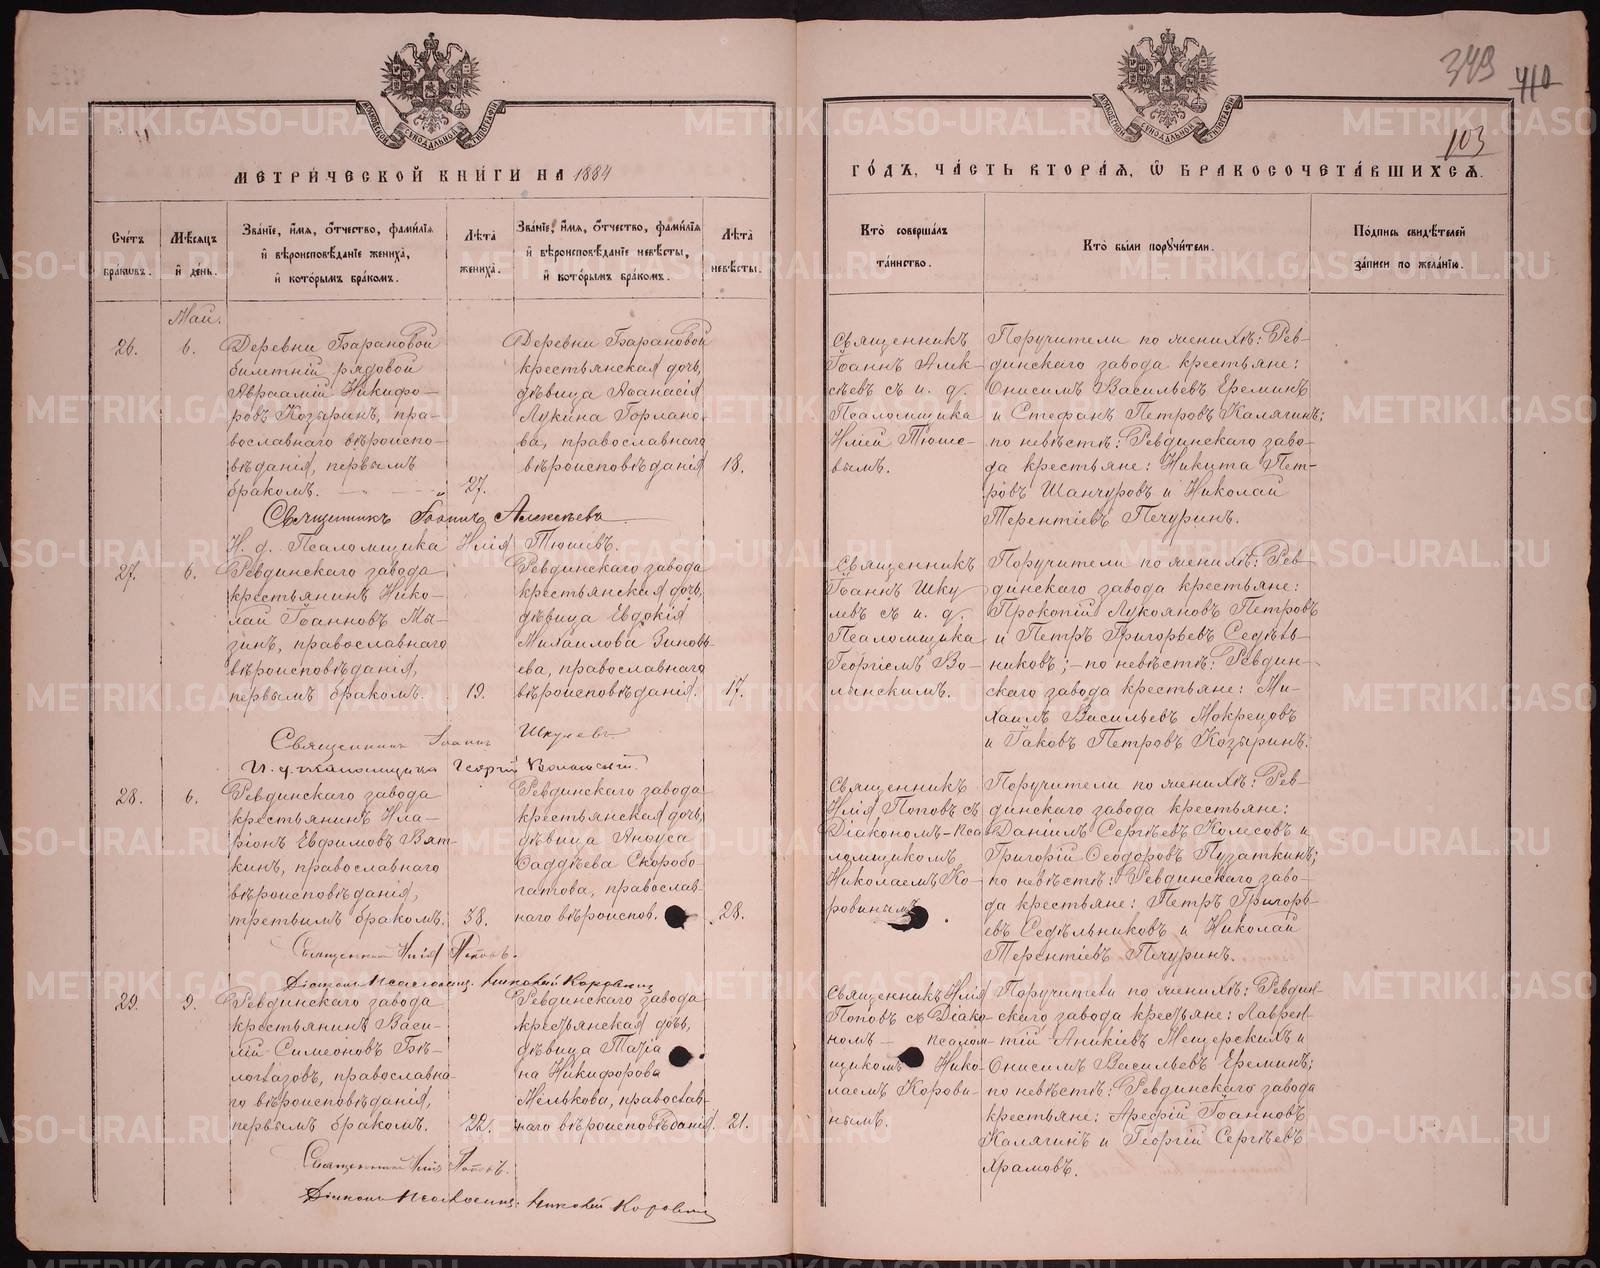 349 410
103
МЕТРИ́ЧЕСКОЙ КНИ́ГИ НА 1884
ГО́ДЪ, ЧА́СТЬ ВТОРА́Я, Ѽ БРАКОСОЧЕТА́ВШИХСЯ.
Сче́тъ бра́кωвъ.
Мѣ́сяцъ и̂ де́нь.
Зва́нїе, и́мя, ѻ҆́тчество, фами́лїя и̂ вѣроисповѣ́данїе жениха̀, и̂ кото́рымъ бра́комъ.
Лѣ́та жениха̀.
Зва́нїе, и́мя, ѻ҆́тчество, фами́лїя и̂ вѣроисповѣ́данїе невѣ́сты, и̂ кото́рымъ бра́комъ.
Лѣ́та невѣ́сты.
Кто̀ соверша́лъ та́инство.
Кто̀ бы́ли поручи́тели.
По́дпись свидѣ́телей за́писи по жела́нїю.
Май.
26.
6.
Деревни Барановой
билетній рядовой
Авраамій Никифо-
ровъ Козыринъ, пра-
вославнаго вѣроиспо-
вѣданія, первымъ
бракомъ.
27.
Деревни Барановой
крестьянская дочь,
дѣвица Аѳанасія
Лукина Горлано-
ва, православнаго
вѣроисповѣданія
18.
Священникъ
Іоаннъ Алек-
сѣевъ съ и. д.
Псаломщика
Иліей Тюше-
вымъ.
Поручители по женихѣ: Рев-
динскаго завода крестьяне:
Онисимъ Васильевъ Ереминъ
и Стефанъ Петровъ Калягинъ;
по невѣстѣ: Ревдинскаго заво-
да крестьяне: Никита Пет-
ровъ Шанчуровъ и Николай
Терентіевъ Печуринъ.
Священникъ Іоаннъ Алексѣевъ
И. д. Псаломщика Илія Тюшевъ.
27.
6.
Ревдинскаго завода
крестьянинъ Нико-
лай Іоанновъ Мы-
зинъ, православнаго
вѣроисповѣданія,
первымъ бракомъ.
19.
Ревдинскаго завода
крестьянская дочь,
дѣвица Евдокія
Михаилова Зиновь-
ева, православнаго
вѣроисповѣданія.
17.
Священникъ
Іоаннъ Шку
левъ съ и. д.
Псаломщика
Георгіемъ Во-
лынскимъ.
Поручители по женихѣ: Рев-
динскаго завода крестьяне:
Прокопій Лукояновъ Петровъ
и Петръ Григорьевъ Седѣль-
никовъ;-по невѣстѣ: Ревдин-
скаго завода крестьяне: Ми-
хаилъ Васильевъ Мокрецовъ
и Іаковъ Петровъ Козыринъ.
Священникъ Іоаннъ Шкулевъ
И. д. псаломщика Георгій Волынскій.
28.
6.
Ревдинскаго завода
крестьянинъ Ила-
ріонъ Евфимовъ Вят-
кинъ, православнаго
вѣроисповѣданія,
третьимъ бракомъ.
38.
Ревдинскаго завода
крестьянская дочь,
дѣвица Анѳуса
Ѳаддѣева Скоробо-
гатова, православ-
наго вѣроиспов.
28.
Священникъ
Илія Поповъ съ
Діакономъ-пса
ломщикомъ
Николаемъ Ко-
ровинымъ
Поручители по женихѣ: Рев-
динскаго завода крестьяне:
Даніилъ Сергѣевъ Колесовъ и
Григорій Ѳеодоровъ Пузаткинъ;
по невѣстѣ: Ревдинскаго заво-
да крестьяне: Петръ Григорь-
евъ Седѣльниковъ и Николай
Терентіевъ Печуринъ.
Священникъ Илія Поповъ.
Діаконъ Псаломщ. Николай Коровинъ
29.
9.
Ревдинскаго завода
крестьянинъ Васи-
лій Симеоновъ Бѣ-
логлазовъ, православна-
го вѣроисповѣданія,
первымъ бракомъ.
22.
Ревдинскаго завода
крестьянская дочь,
дѣвица Татіа
на Никифорова
Мелькова, православ-
наго вѣроисповѣданія.
21.
Священникъ Илія
Поповъ съ Діако-
номъ - псалом-
щикомъ Нико-
лаемъ Корови-
нымъ.
Поручители по женихѣ: Ревдин-
скаго завода крестьяне: Лаврен-
тій Аникіевъ Мещерскихъ и
Онисимъ Васильевъ Ереминъ;
по невѣстѣ: Ревдинскаго завода
крестьяне: Арефій Іоанновъ
Калягинъ и Георгій Сергѣевъ
Храмовъ.
Священникъ Илія Поповъ.
Діаконъ Псаломщ. Николай Коровинъ